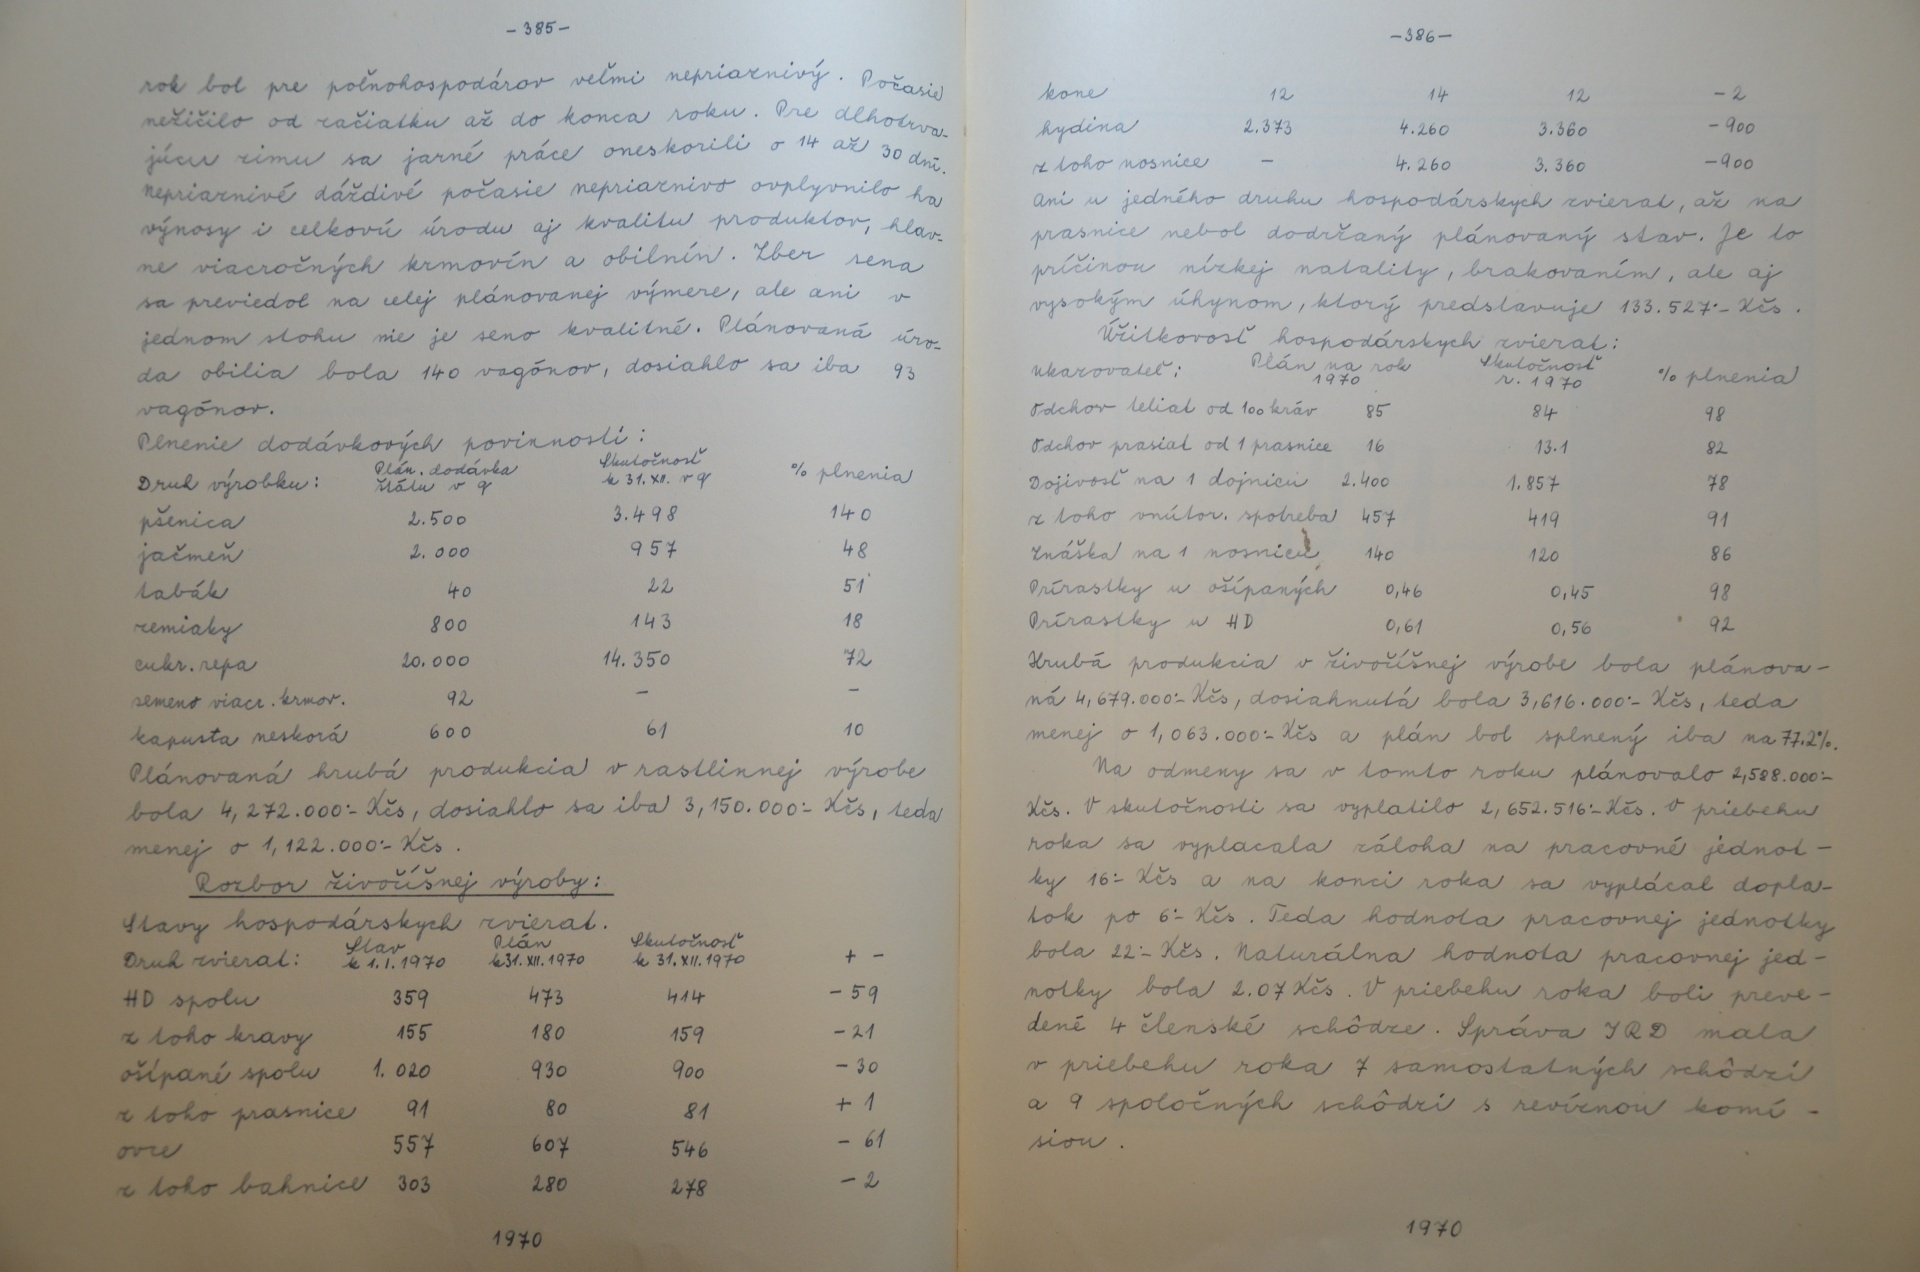 -385-
rok bol pre poľnohospodárov veľmi nepriaznivý. Počasie
nežičilo od začiatku až do konca roku. Pre dlhotrva-
júcu zimu sa jarné práce oneskorili o 14 až 30 dní.
nepriaznivé dáždivé počasie nepriaznivo ovplyvnilo ha
výnosy i celkovú úrodu aj kvalitu produktov, hlav-
ne viacročných krmovín a obilnín. Zber sena
sa previedol na celej plánovanej výmere, ale ani v
jednom stohu nie je seno kvalitné. Plánovaná úro-
da obilia bola 140 vagónov, dosiahlo sa iba 93
vagónov.
Plnenie dodávkových povinností:
Druh výrobku: Plán. dodávka štátu v q Skutočnosť k 31. XII. v q % plnenia
pšenica 2.500 3.498 140
jačmeň 2.000 957 48
tabák 40 22 51
zemiaky 800 143 18
cukr. repa 20.000 14.350 72
semeno viacr. krmov. 92 - -
kapusta neskorá 600 61 10
Plánovaná hrubá produkcia v rastlinnej výrobe
bola 4,272.000:- Kčs, dosiahlo sa iba 3,150.000:- Kčs, teda
menej o 1,122.000:- Kčs.
Rozbor živočíšnej výroby:
Stavy hospodárskych zvierat.
Druh zvierat: Stav k 1.I.1970 Plán k 31.XII.1970 Skutočnosť k 31.XII.1970 + -
HD spolu 359 473 414 - 59
z toho kravy 155 180 159 - 21
ošípané spolu 1.020 930 900 - 30
z toho prasnice 91 80 81 + 1
ovce 557 607 546 - 61
z toho bahnice 303 280 278 - 2
1970
-386-
kone 12 14 12 - 2
hydina 2.373 4.260 3.360 - 900
z toho nosnice - 4.260 3.360 - 900
Ani u jedného druhu hospodárskych zvierat, až na
prasnice nebol dodržaný plánovaný stav. Je to
príčinou nízkej natality, brakovaním, ale aj
vysokým úhynom, ktorý predstavuje 133.527:- Kčs.
Úžitkovosť hospodárskych zvierat:
Ukazovateľ: Plán na rok 1970 Skutočnosť r. 1970 % plnenia
Odchov teliat od 100 kráv 85 84 98
Odchov prasiat od 1 prasnice 16 13.1 82
Dojivosť na 1 dojnicu 2.400 1.857 78
z toho vnútor. spotreba 457 419 91
Znáška na 1 nosnicu 140 120 86
Prírastky u ošípaných 0,46 0,45 98
Prírastky u HD 0,61 0,56 92
Hrubá produkcia v živočíšnej výrobe bola plánova-
ná 4,679.000:- Kčs, dosiahnutá bola 3,616.000:- Kčs, teda
menej o 1,063.000:- Kčs a plán bol splnený iba na 77.2%.
Na odmeny sa v tomto roku plánovalo 2,588.000:-
Kčs. V skutočnosti sa vyplatilo 2,652.516:- Kčs. V priebehu
roka sa vyplacala záloha na pracovné jednot-
ky 16:- Kčs a na konci roka sa vyplácal dopla-
tok po 6:- Kčs. Teda hodnota pracovnej jednotky
bola 22:- Kčs. Naturálna hodnota pracovnej jed-
notky bola 2.07 Kčs. V priebehu roka boli preve-
dené 4 členské schôdze. Správa JRD mala
v priebehu roka 7 samostatných schôdzí
a 9 spoločných schôdzí s revíznou komi-
siou.
1970